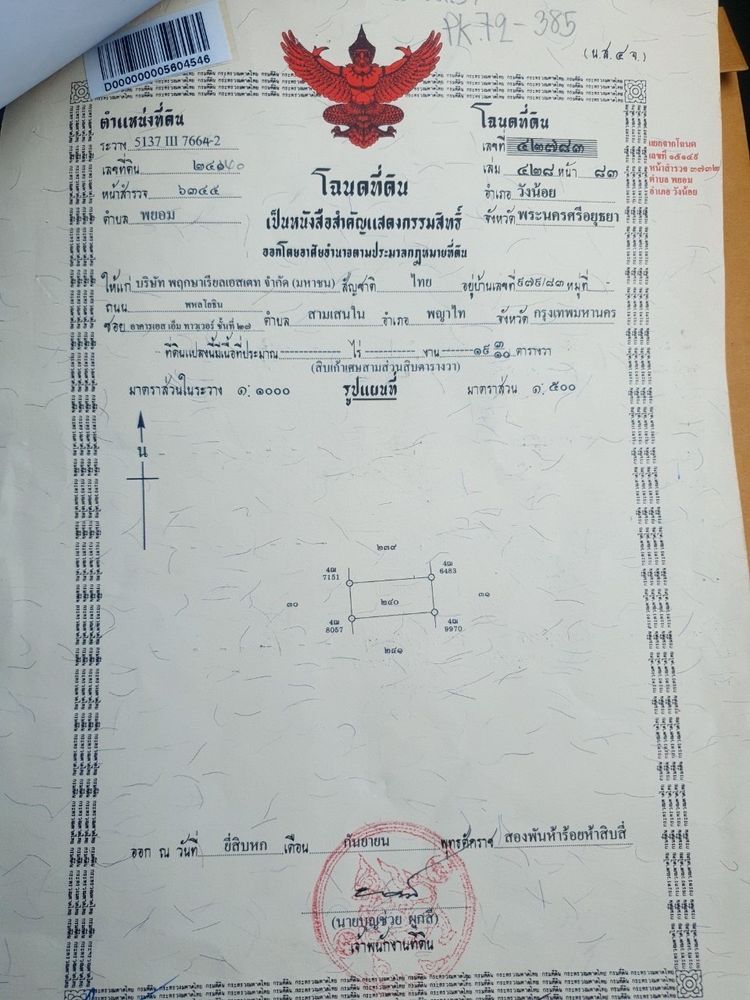 PK72-385
D000000005604546
(น.ส.๔ จ.)
ตำแหน่งที่ดิน
ระวาง 5137 III 7664-2
เลขที่ดิน ๒๔๐
หน้าสำรวจ ๖๓๔๕
ตำบล พยอม
โฉนดที่ดิน
เลขที่ ๔๒๗๘๓
เล่ม ๔๒๘ หน้า ๘๓
อำเภอ วังน้อย
จังหวัด พระนครศรีอยุธยา
แยกจากโฉนด
เลขที่ ๑๕๑๔๙
หน้าสำรวจ ๓๗๓๒
ตำบล พยอม
อำเภอ วังน้อย
โฉนดที่ดิน
เป็นหนังสือสำคัญแสดงกรรมสิทธิ์
ออกโดยอาศัยอำนาจตามประมวลกฎหมายที่ดิน
ให้แก่ บริษัท พฤกษาเรียลเอสเตท จำกัด (มหาชน) สัญชาติ ไทย อยู่บ้านเลขที่ ๙๗๙/๘๓ หมู่ที่ -
ถนน พหลโยธิน
ซอย อาคารเอส เอ็ม ทาวเวอร์ ชั้นที่ ๒๗ ตำบล สามเสนใน อำเภอ พญาไท จังหวัด กรุงเทพมหานคร
ที่ดินแปลงนี้มีเนื้อที่ประมาณ ------------ ไร่ ---------- งาน ---- ๑๙ ๓/๑๐ ตารางวา
(สิบเก้าเศษสามส่วนสิบตารางวา)
มาตราส่วนในระวาง ๑: ๑๐๐๐ รูปแผนที่ มาตราส่วน ๑: ๕๐๐
น
๒๓๙
4ฌ
7151
4ฌ
6483
๓๐
๒๔๐
๓๑
4ฌ
8057
4ฌ
9970
๒๔๑
ออก ณ วันที่ ยี่สิบหก เดือน กันยายน พุทธศักราช สองพันห้าร้อยห้าสิบสี่
(นายบุญช่วย ผูกสี)
เจ้าพนักงานที่ดิน